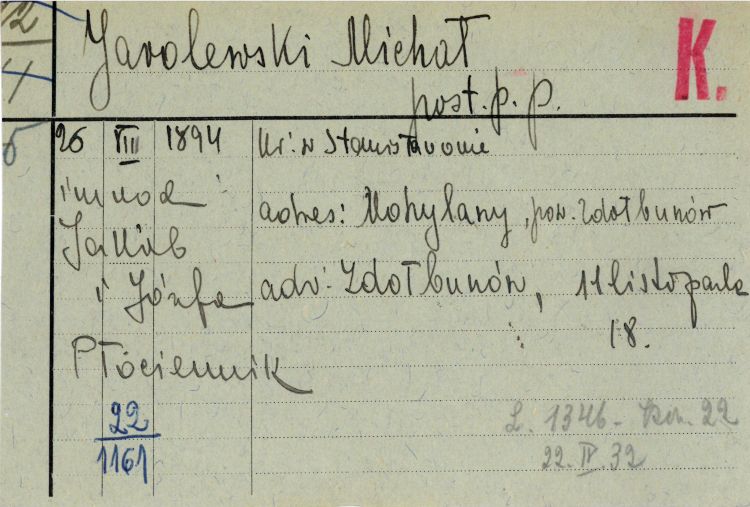 12
4
5
Jarolewski Michał
K.
post. p. p.
26 VIII 1894 ur: w Stanisławowie
im rodz:
adres: Mohylany, pow. Zdołbunów
Jakób
i Józefa
adr: Zdołbunów, 11 listopada
18.
Płóciennik
22
1161
L. 1346 - Kon. 22
22. IV. 32